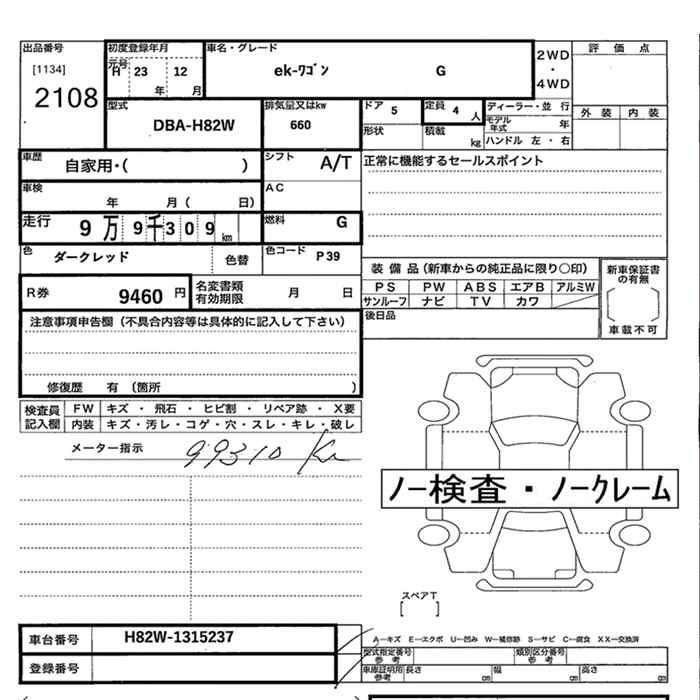 出品番号 初度登録年月 車名・グレード 2WD ・ 4WD 評価点
[1134] 元号 H 23 12 年 月 ek-ワゴン G
2108 外装 内装
型式 排気量又はkw ドア 5 定員 4 人 ディーラー・並行
DBA-H82W 660 形状 積載 kg モデル年式 年
ハンドル 左・右
車歴 自家用・( ) シフト A/T 正常に機能するセールスポイント
車検 年 月( 日) AC
走行 9万9千309km 燃料 G
色 ダークレッド 色替 色コード P39
装備品(新車からの純正品に限り○印) 新車保証書の有無
PS PW ABS エアB アルミW
サンルーフ ナビ TV カワ 車載不可
R券 9460円 名変書類有効期限 月 日
後日品
注意事項申告欄(不具合内容等は具体的に記入して下さい)
修復歴 有 (箇所 )
検査員記入欄 FW キズ・飛石・ヒビ割・リペア跡・X要
内装 キズ・汚レ・コゲ・穴・スレ・キレ・破レ
メーター指示 99310 Km
ノー検査・ノークレーム
スペアT
[ ]
車台番号 H82W-1315237
登録番号
A―キズ E―エクボ U―凹み W―補修跡 S―サビ C―腐食 XX―交換済
型式指定番号 参考 類別区分番号 参考
車庫証明用 参考 長さ cm 幅 cm 高さ cm